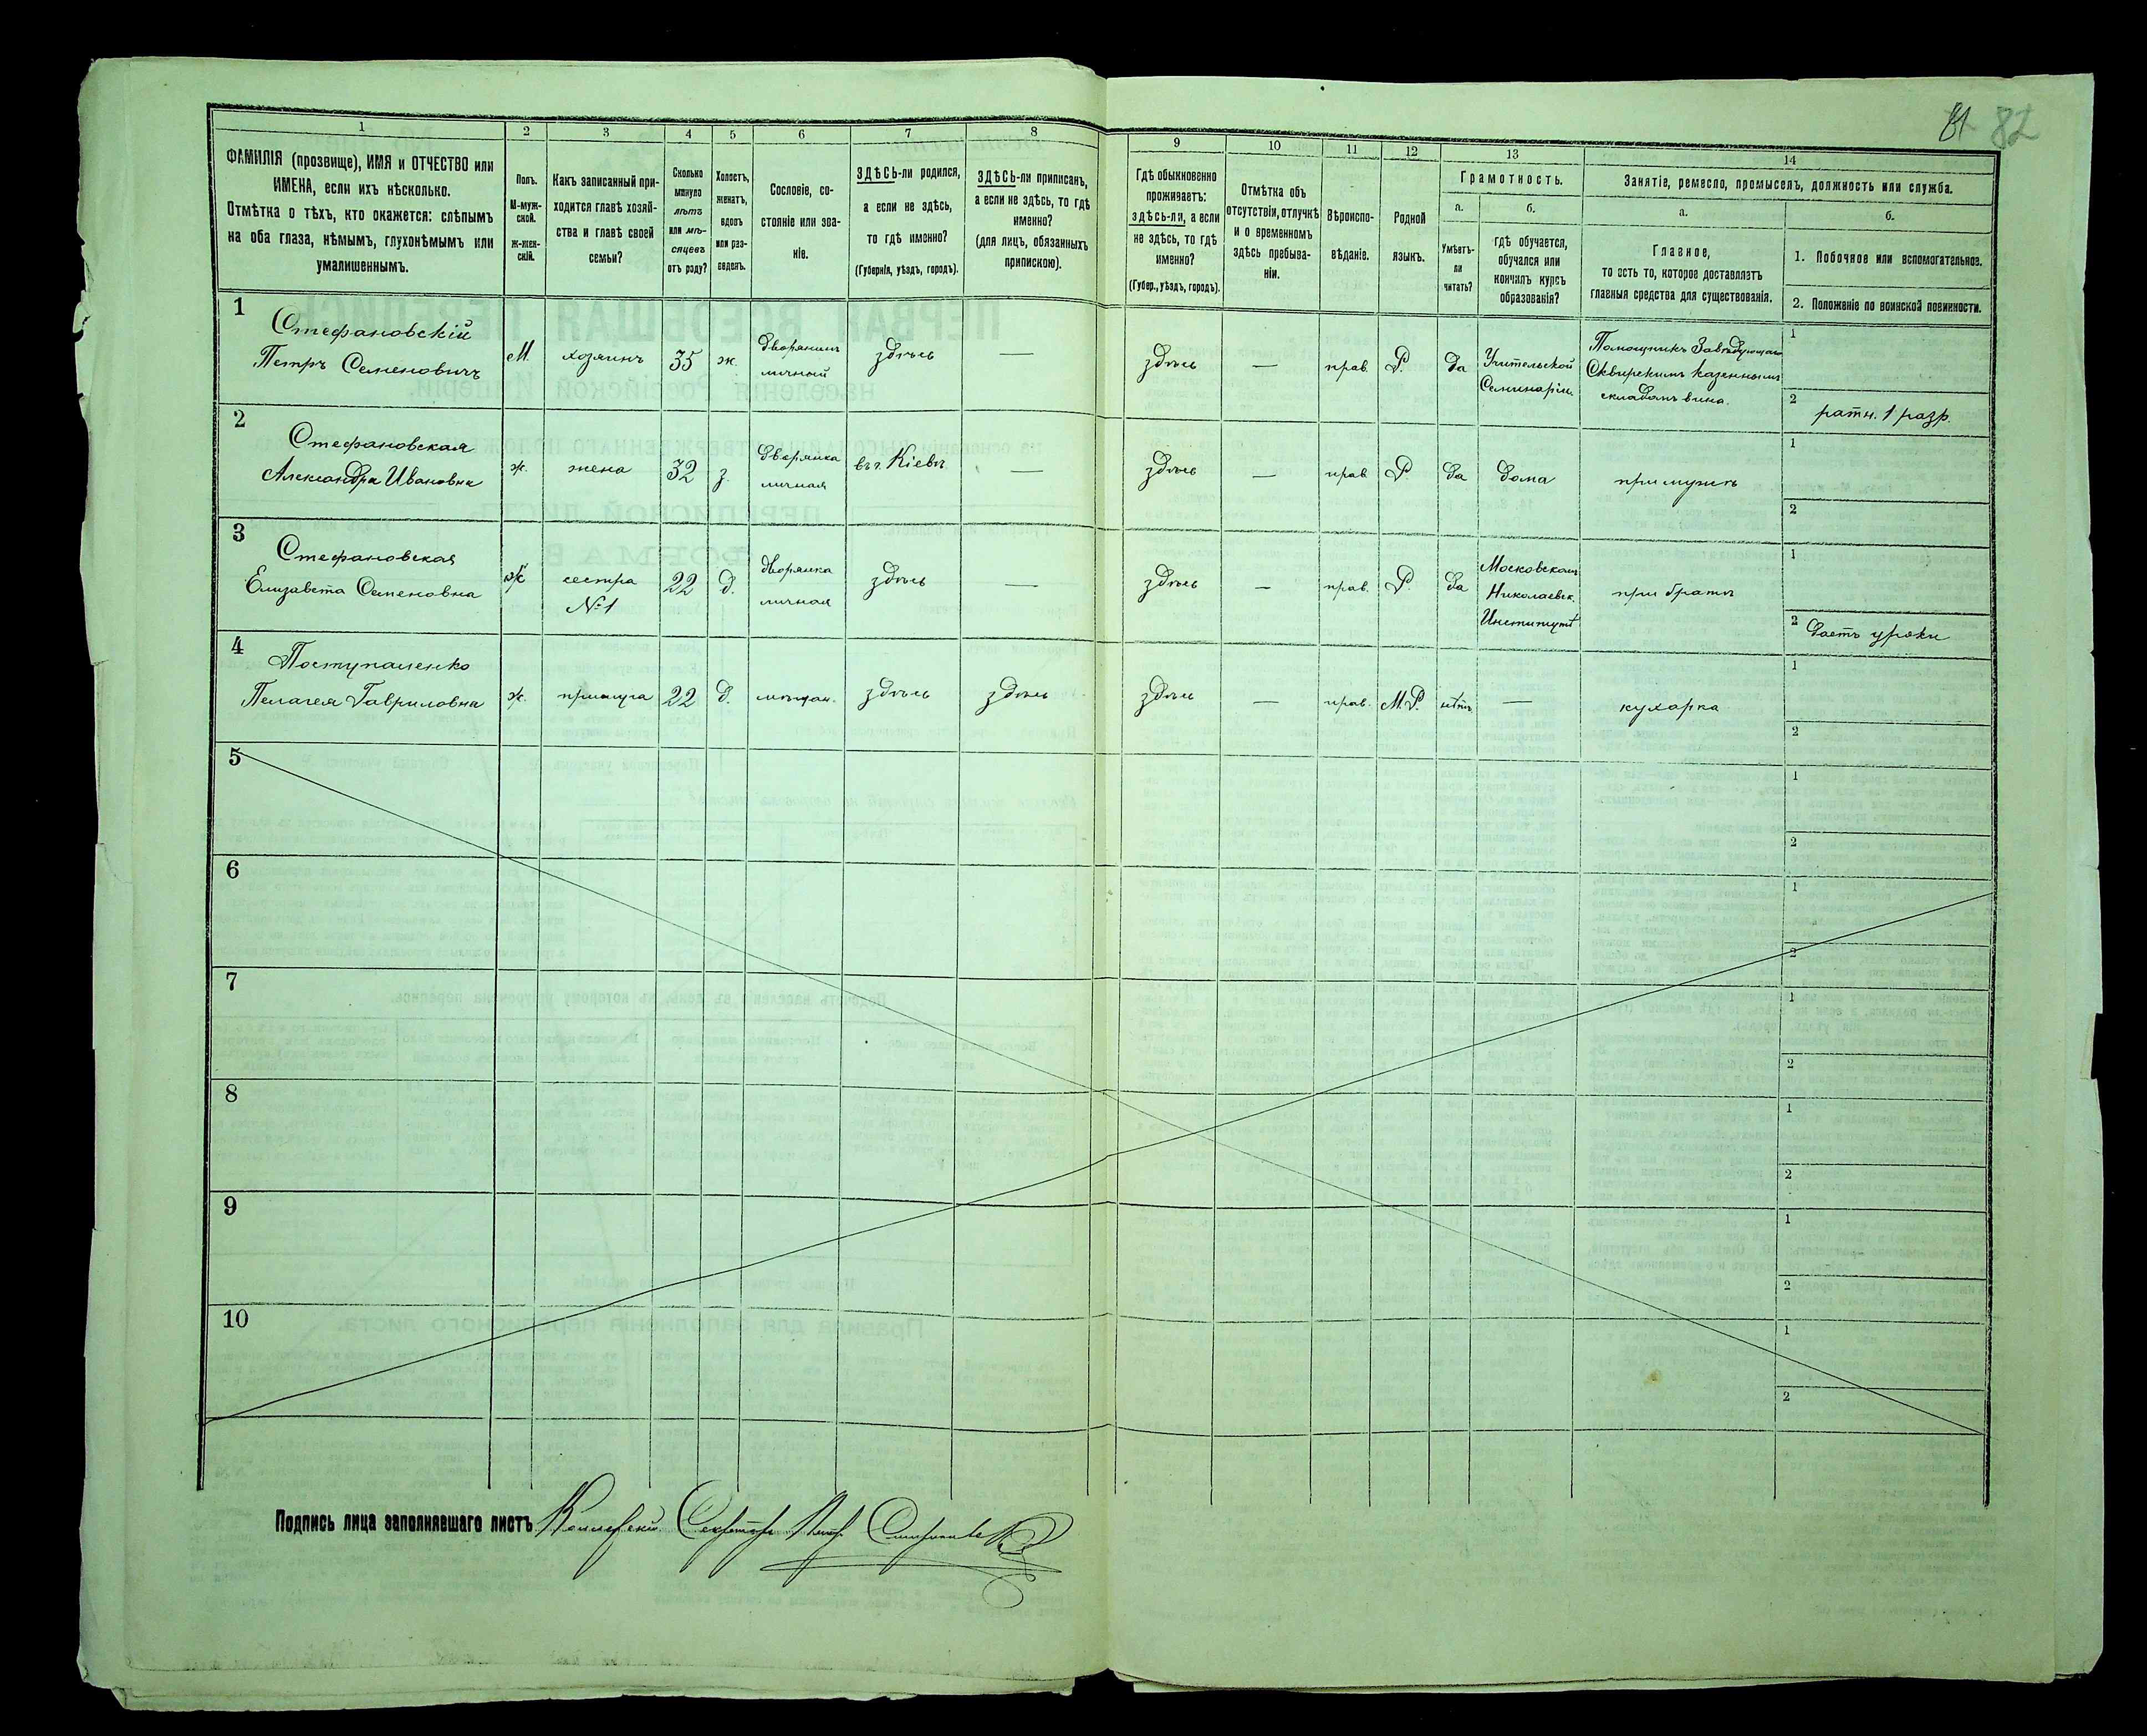 81 82
1
2
3
4
5
6
7
8
9
10
11
12
13
14
ФАМИЛІЯ (прозвище), ИМЯ и ОТЧЕСТВО или
ИМЕНА, если ихъ нѣсколько.
Отмѣтка о тѣхъ, кто окажется: слѣпымъ
на оба глаза, нѣмымъ, глухонѣмымъ или
умалишеннымъ.
Полъ.
М-муж-
ской.
Ж-жен-
скій.
Какъ записанный при-
ходится главѣ хозяй-
ства и главѣ своей
семьи?
Сколько
минуло
лѣтъ
или мѣ-
сяцевъ
отъ роду?
Холостъ,
женатъ,
вдовъ
или раз-
веденъ.
Сословіе, со-
стояніе или зва-
ніе.
ЗДѢСЬ-ли родился,
а если не здѣсь,
то гдѣ именно?
(Губернія, уѣздъ, городъ).
ЗДѢСЬ-ли приписанъ,
а если не здѣсь, то гдѣ
именно?
(для лицъ, обязанныхъ
припискою).
Гдѣ обыкновенно
проживаетъ:
здѣсь-ли, а если
не здѣсь, то гдѣ
именно?
(Губер., уѣздъ, городъ).
Отмѣтка объ
отсутствіи, отлучкѣ
и о временномъ
здѣсь пребыва-
ніи.
Вѣроиспо-
вѣданіе.
Родной
языкъ.
Грамотность.
а.
Умѣетъ-
ли
читать?
б.
гдѣ обучается,
обучался или
кончилъ курсъ
образованія?
Занятіе, ремесло, промыселъ, должность или служба.
а.
Главное,
то есть то, которое доставляетъ
главныя средства для существованія.
б.
1. Побочное или вспомогательное.
2. Положеніе по воинской повинности.
1
Стефановскій
Петръ Семеновичъ
М.
хозяинъ
35
ж.
дворянинъ
личный
здѣсь
—
здѣсь
—
прав.
Р.
да
Учительской
Семинаріи.
Помощникъ Завѣдующаго
Сквирскимъ казеннымъ
складомъ вина.
1
2
ратн. 1 разр.
2
Стефановская
Александра Ивановна
ж.
жена
32
з.
дворянка
личная
въ г. Кіевѣ
—
здѣсь
—
прав
Р.
да
дома
при мужѣ
1
2
3
Стефановская
Елизавета Семеновна
ж
сестра
№ 1
22
д.
дворянка
личная
здѣсь
—
здѣсь
—
прав.
Р.
да
Московскомъ
Николаевск.
Институтѣ
при братѣ
1
2
даетъ уроки
4
Поступаленко
Пелагея Гавриловна
ж.
прислуга
22
д.
мѣщан.
здѣсь
здѣсь
здѣсь
—
прав.
М.Р.
нѣтъ
—
кухарка
1
2
5
1
2
6
1
2
7
1
2
8
1
2
9
1
2
10
1
2
Подпись лица заполнявшаго листъ Коллежскій Секретарь Петр